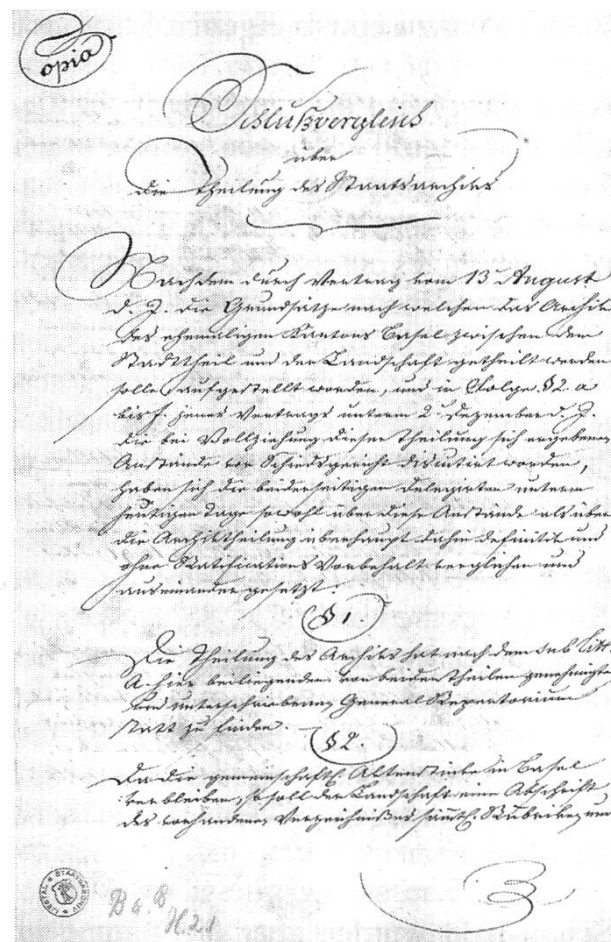 Copia
Schlußvergleich
über
die Theilung des Staatsarchives
Nachdem durch Vertrag vom 13. August
d. J. die Grundsätze nach welchen das Archiv
des ehemaligen Kantons Basel zwischen dem
Stadttheil und der Landschaft getheilt werden
solle, aufgestellt worden, und in Folge § 2. a
bis f. jenes Vertrags unterm 2. Dezember d. J.
die bei Vollziehung dieser Theilung sich ergebenen
Anstände vor Schiedsgericht diskutirt worden,
haben sich die beiderseitigen Delegirten unterm
heutigen Tage sowohl über diese Anstände als über
die Archivtheilung überhaupt dahin definitiv und
ohne Ratifications Vorbehalt verglichen und
auseinander gesetzt:
§ 1.
Die Theilung des Archivs hat nach dem sub Litt.
A. hier beiliegenden von beiden Theilen genehmigten
und unterschriebenen General Repertorium
statt zu finden.
§ 2.
Da die gemeinschaftl. Aktenstücke in Basel
verbleiben, so soll der Landschaft eine Abschrift
des vorhandenen Verzeichnißes sämtl. Rubriken, und
STAATSARCHIV LIESTAL
H. 2.1